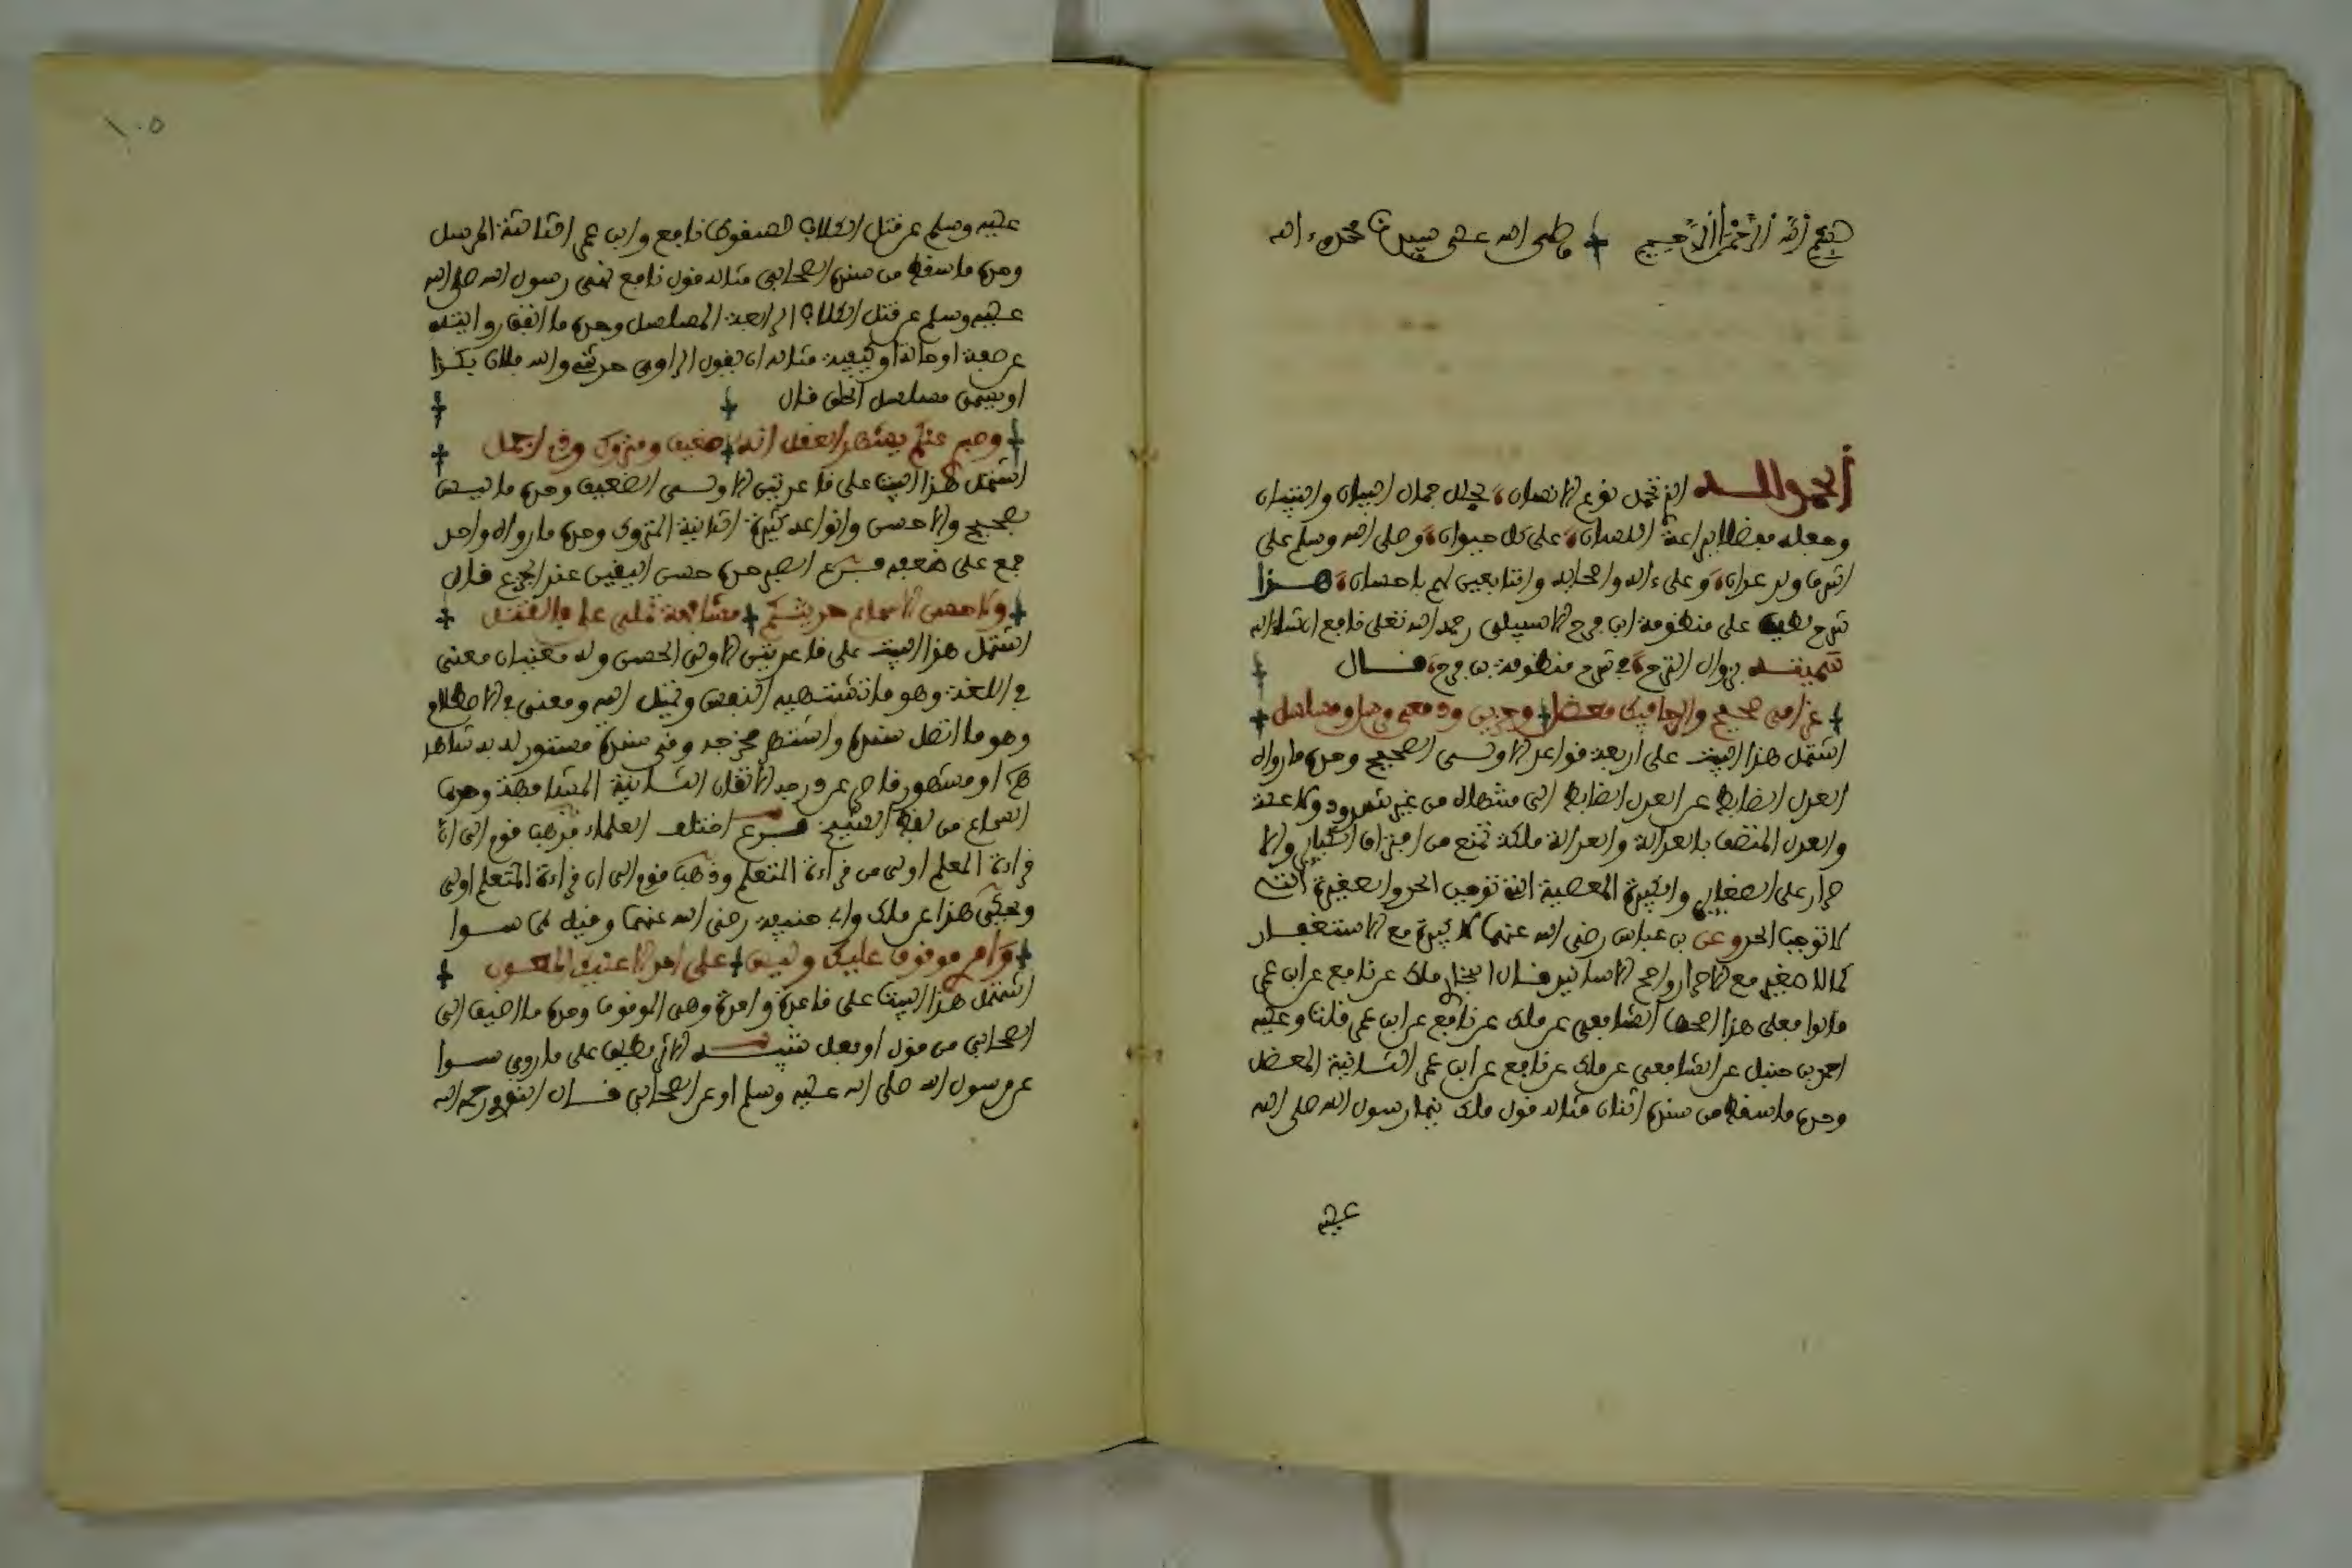 بسم الله الرحمن الرحيم وصلى الله على سيدنا محمد وءاله
الحمد لله الذي جمل نوع الانسان بحلل جمال البيان والتبيان
وجعله بفضل براعة اللسان على كل حيوان وصلى الله وسلم على
اشرف ولد عدنان وعلى ءاله واصحابه والتابعين لهم باحسان هذا
شرح لطيف على منظومة ابن فرح الاسبيلي رحمه الله تعلى نافع ان شاء الله
سميته بزوال الترح في شرح منظومة بن فرح قال
غرامي صحيح والرجا فيك معضل وحزني ودمعي مرسل ومسلسل
اشتمل هذا البيت على اربعة قواعد الاولى الصحيح وحده ما رواه
العدل الضابط عن العدل الضابط الى منتهاه من غير شذوذ ولا علة
والعدل المتصف بالعدالة والعدالة ملكة تمنع من اقتراف الكباير والا
صرار على الصغاير والكبيرة المعصية التي توجب الحد والصغيرة التي
لا توجب الحد وعن بن عباس رضي الله عنهما لا كبيرة مع الاستغفار
كما لا صغير مع الاصرار واصح الاسانيد قال البخاري ملك عن نافع عن ابن عمر
قالوا فعلى هذا اصحها الشافعي عن ملك عن نافع عن ابن عمر قلت وعليه
احمد بن حنبل عن الشافعي عن ملك عن نافع عن ابن عمر الثانية المعضل
وحده ما سقط من سنده اثنان مثاله قول ملك نهى رسول الله صلى الله
عليه
١٠٥
عليه وسلم عن قتل الكلاب لسقوط نافع وابن عمر الثالثة المرسل
وحده ما سقط من سنده الصحابي مثاله قول نافع نهى رسول الله صلى الله
عليه وسلم عن قتل الكلاب الرابعة المسلسل وحده ما اتفق رواته
عن صفة او حالة او كيفية مثاله ان يقول الراوي حدثني والله فلان بكذا
او يسمى مسلسل الحلف قال
وصبري عنكم يشهد العقل انه ضعيف ومتروك وذلي اجمل
اشتمل هذا البيت على قاعدتين الاولى الضعيف وحده ما ليس
بصحيح ولا حسن وانواعه كثيرة الثانية المتروك وحده ما رواه واحد
جمع على ضعفه فرع الصبر حده حسن اليقين عند الجزع قال
ولا حسن الا سماع حديثكم مشافهة تملى علي فانقل
اشتمل هذا البيت على قاعدتين الاولى الحسن وله معنيان معنى
في اللغة وهو ما تشتهيه النفس وتميل اليه ومعنى في الاصطلاح
وهو ما اتصل سنده واشتهر مخرجه وفي سنده مستور له به شاهد
او مشهور قاصر عن درجة الاتقان الثانية المشافهة وحدها
السماع من لفظ الشيخ فرع اختلف العلماء فذهب قوم الى ان
قراءة المعلم اولى من قراءة المتعلم وذهب قوم الى ان قراءة المتعلم اولى
ويحكى هذا عن ملك وابي حنيفة رضي الله عنهما وقيل هما سوا
وامري موقوف عليك وليس لي على احد الا عليك المعول
اشتمل هذا البيت على قاعدة واحدة وهي الموقوف وحده ما اضيف الى
الصحابي من قول او فعل تنبيه الاثر يطلق على ما روي سوا
عن رسول الله صلى الله عليه وسلم او عن الصحابي قال النووي رحمه الله